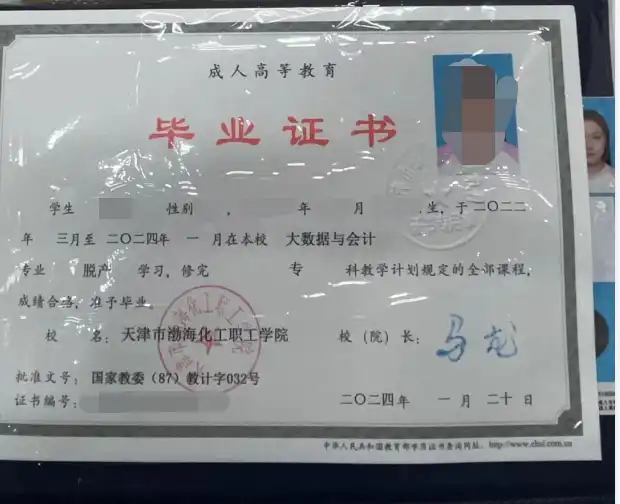 成人高等教育
毕业证书
学生 性别 , 年 月 生,于二〇二二
年 三月至 二〇二四年 一月在本校 大数据与会计
专业 脱产 学习,修完 专 科教学计划规定的全部课程,
成绩合格,准予毕业。
校 名:天津市渤海化工职工学院 校(院)长:马龙
批准文号:国家教委(87)教计字032号
证书编号:
二〇二四年 一月二十日
中华人民共和国教育部学历证书查询网址:http://www.chsi.com.cn